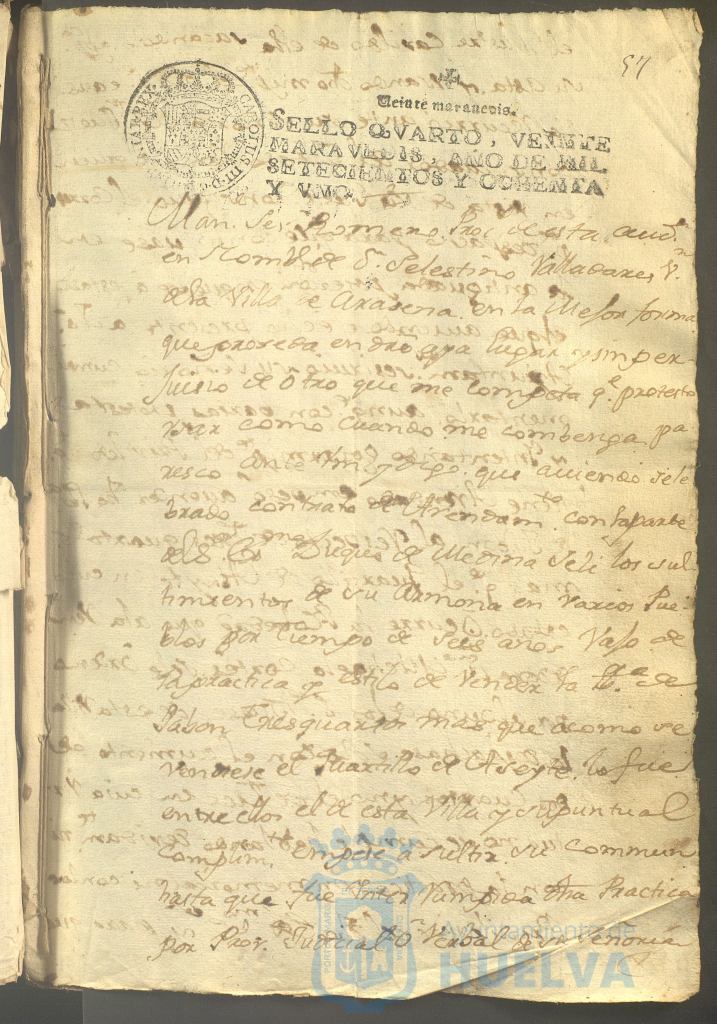 57
Veinte maravedis.
SELLO QVARTO, VEINTE
MARAVEDIS, AÑO DE MIL
SETECIENTOS Y OCHENTA
Y VNO.
CAROLUS III D.G. HISPANIAR. REX
Man. Ser. Romero Proc. de esta aud.ª
en Nombre de Dn. Selestino Valladares V.º
de la Villa de Arasena en la Mejor forma
que proseda en dro aya lugar y sin per
juisio de Otro que me competa qe. protesto
Vzar como Cuando me combenga, pa
resco Ante Vm y Digo: que auiendo sele
brado contrato de Arendamto. con la parte
del Duque de Medina Seli los sul
timientos de su Armona en varios Pue
blos por tiempo de Seis años Vajo de
la practica y estilo de Vender la lb.ª de
Jabon tres quartos mas que acomo se
vendiese el Quartillo de Aseyte, lo fue
entre ellos el de esta Villa y su puntual
Complimto. empesé a sultir su Commun
hasta que fue Inter Rumpida dha Practica
por Prov.ª Judicial o Verbal de un Señoria
Ayuntamiento de
HUELVA